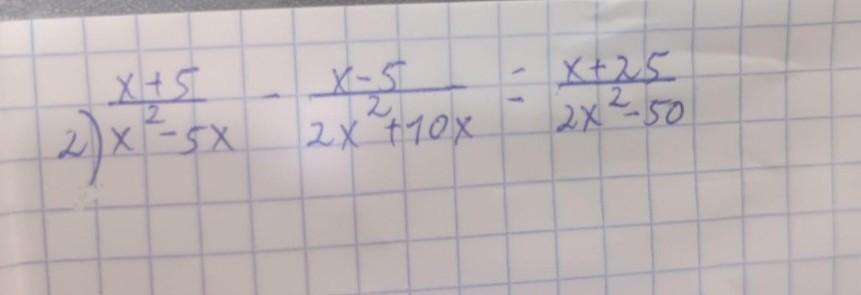 2) (x+5)/(x²-5x) - (x-5)/(2x²+10x) = (x+25)/(2x²-50)